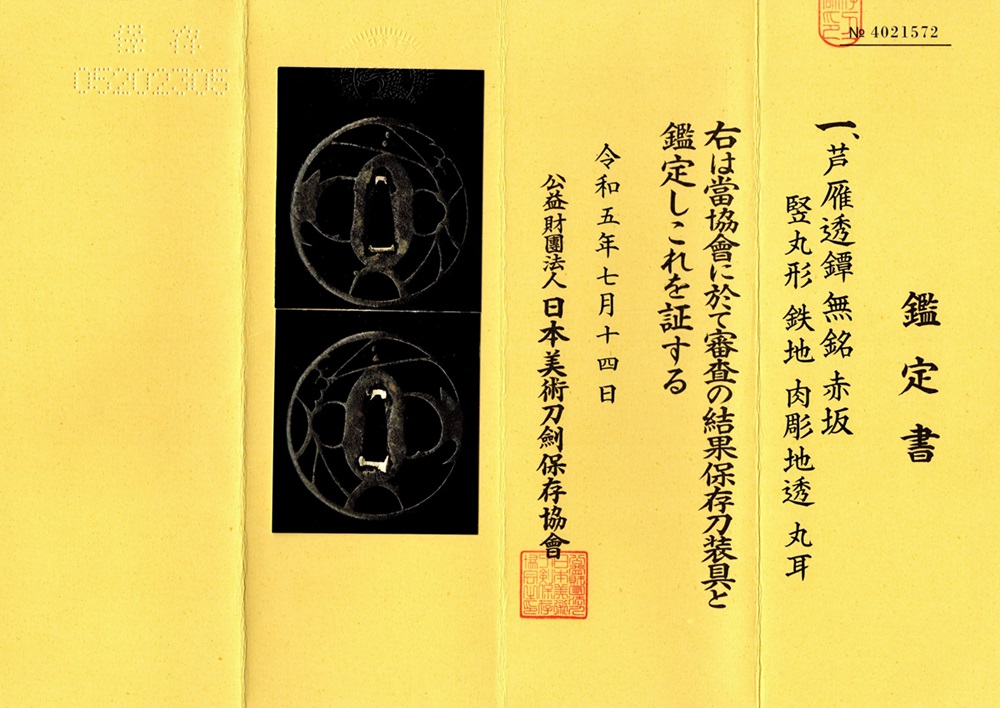 № 4021572
鑑定書
一、芦雁透鐔 無銘 赤坂
竪丸形 鉄地 肉彫地透 丸耳
右は當協會に於て審査の結果保存刀装具と
鑑定しこれを証する
令和五年七月十四日
公益財團法人 日本美術刀劍保存協會
保存
05202305